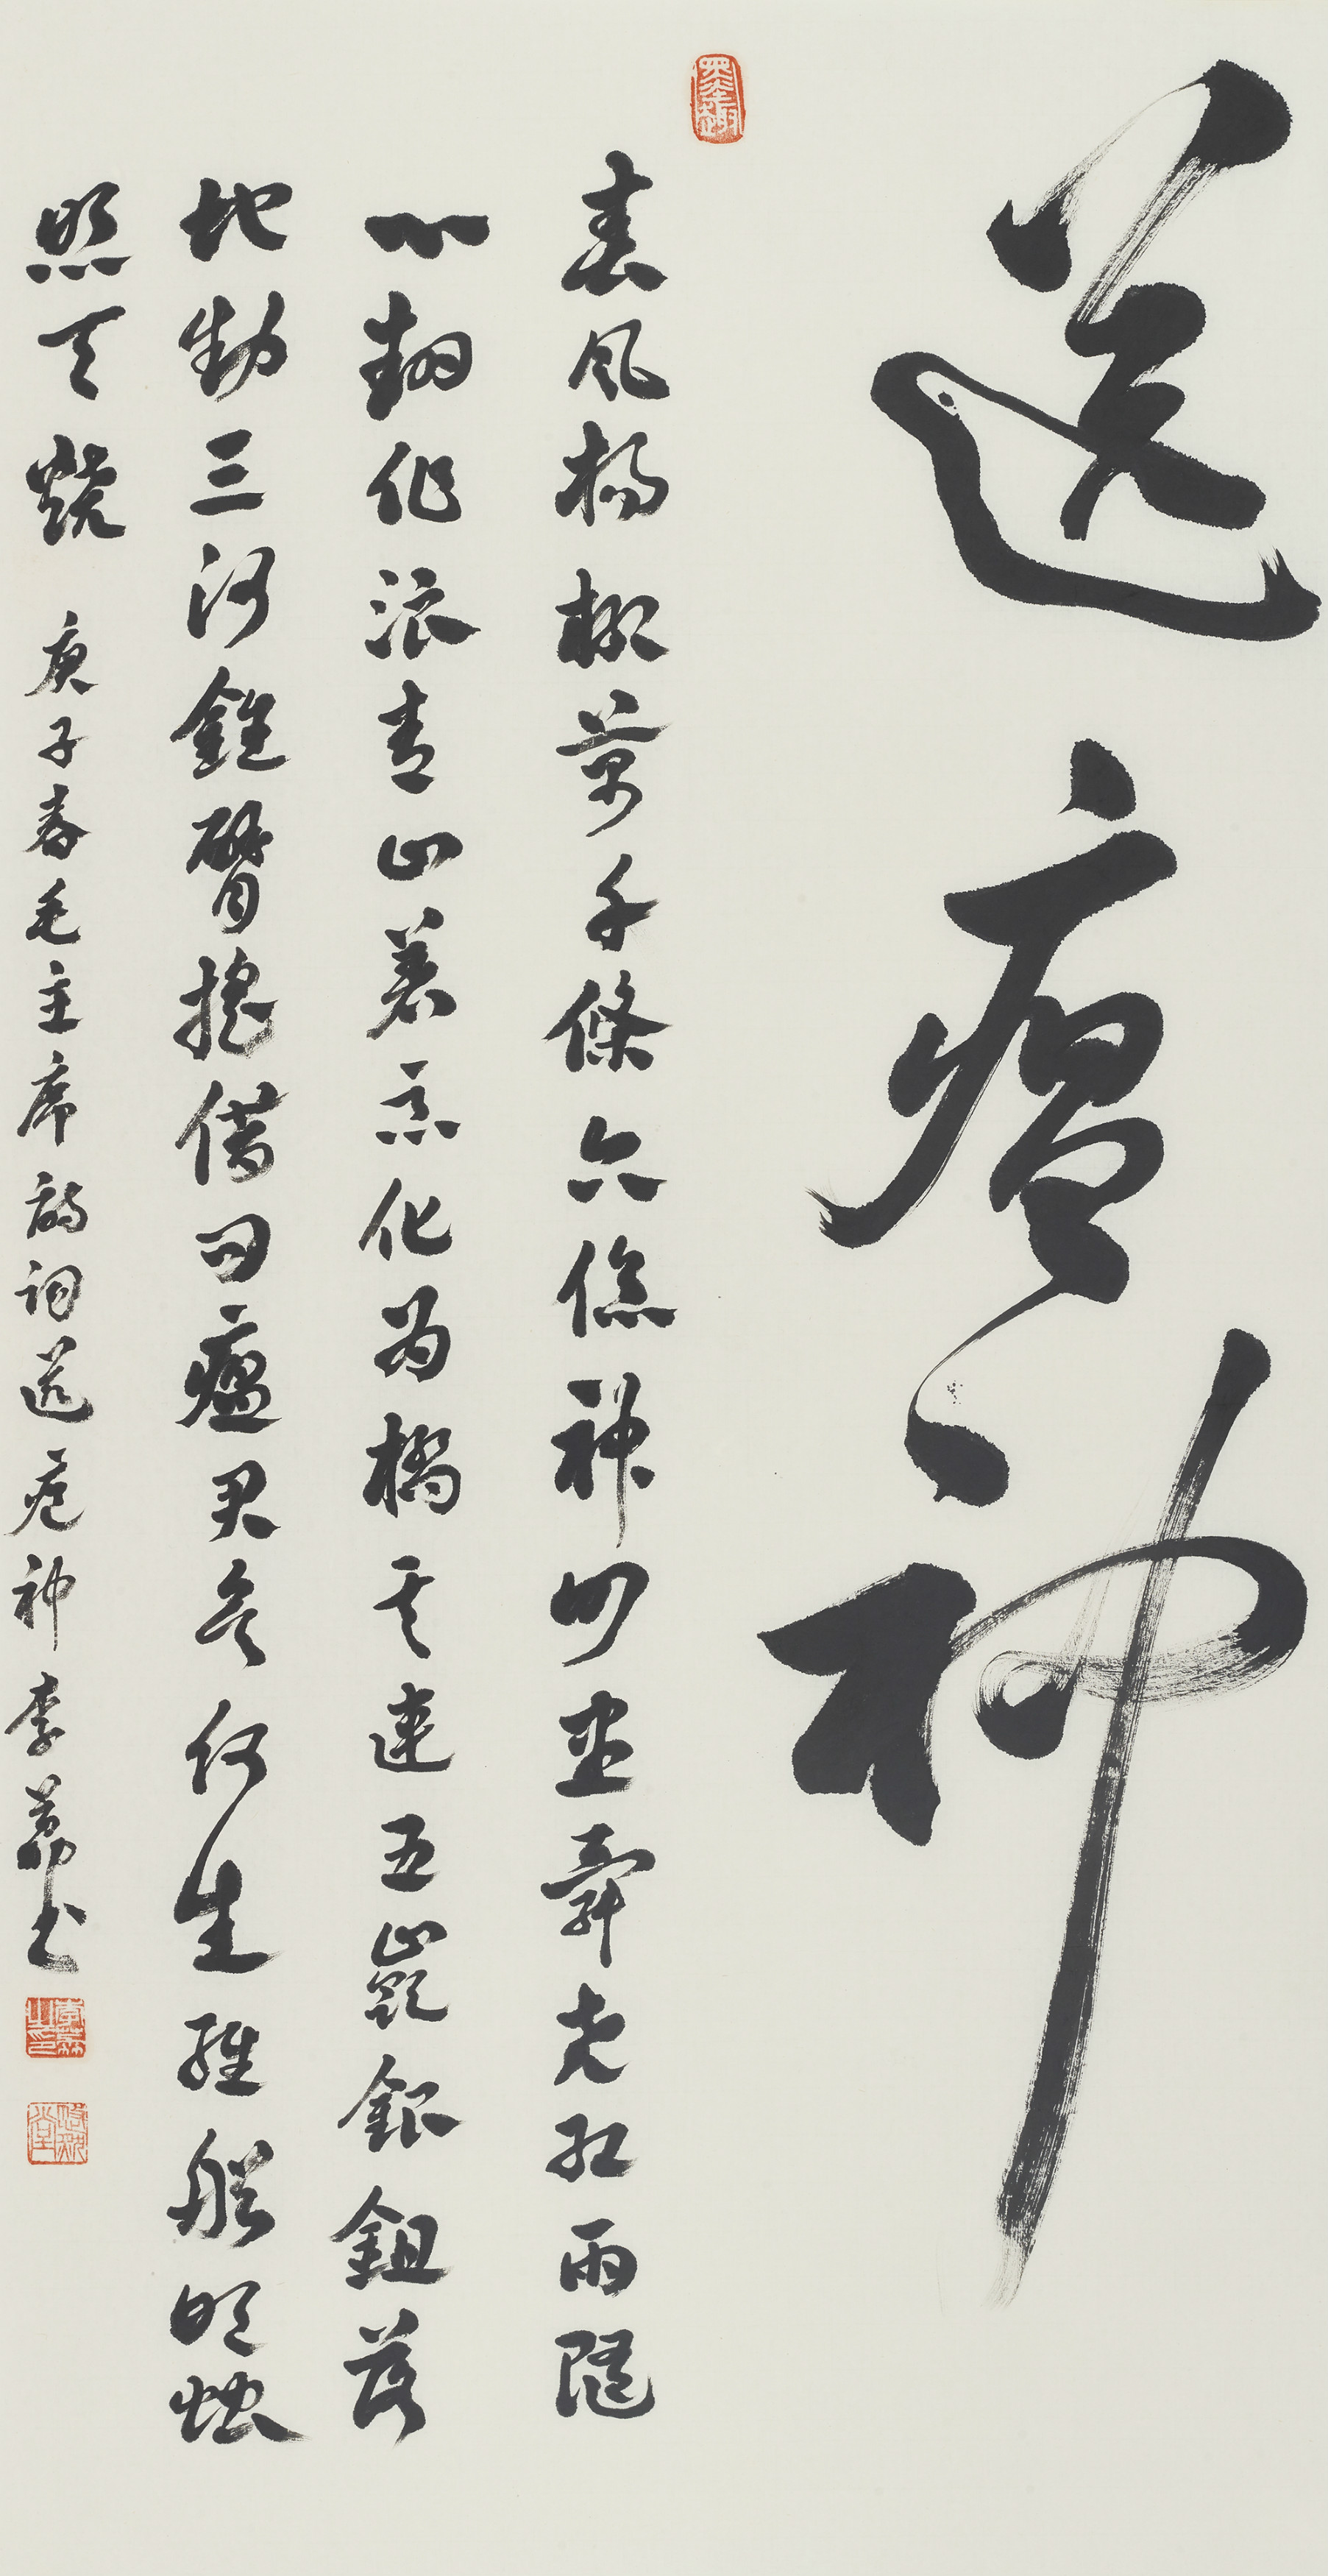 送瘟神
墨趣
春风楊柳萬千條六億神州盡舜尧红雨隨
心翻作浪青山着意化为橋天連五嶺銀鉏落
地動三河鐵臂摇借问瘟君欲何往纸船明烛
照天燒 庚子春毛主席诗词送瘟神李荔书